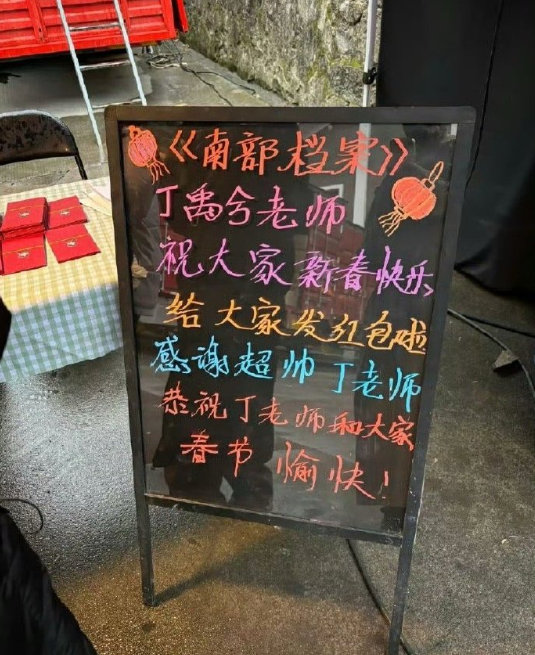 《南部档案》
丁禹兮老师
祝大家新春快乐
给大家发红包啦
感谢超帅丁老师
恭祝丁老师和大家
春节愉快!